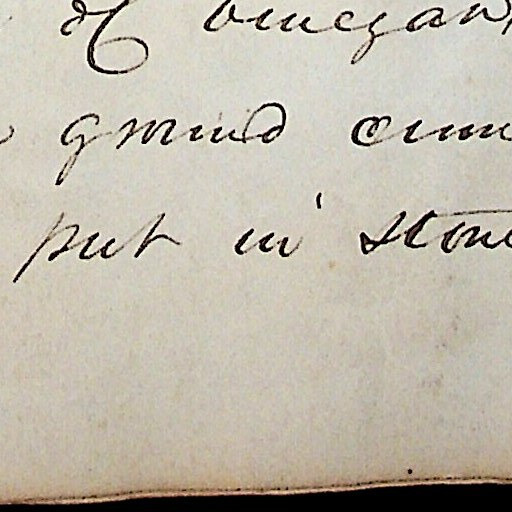 of vinegar
ground cinn
put in stone